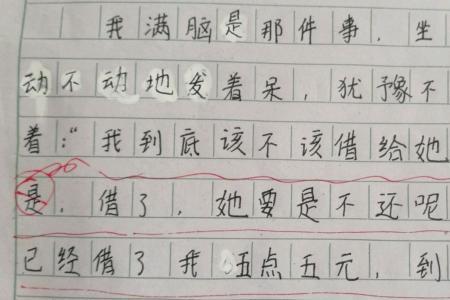 我满脑是那件事，坐
动不动地发着呆，犹豫不
着：“我到底该不该借给她
是，借了，她要是不还呢
已经借了我5点五元，到